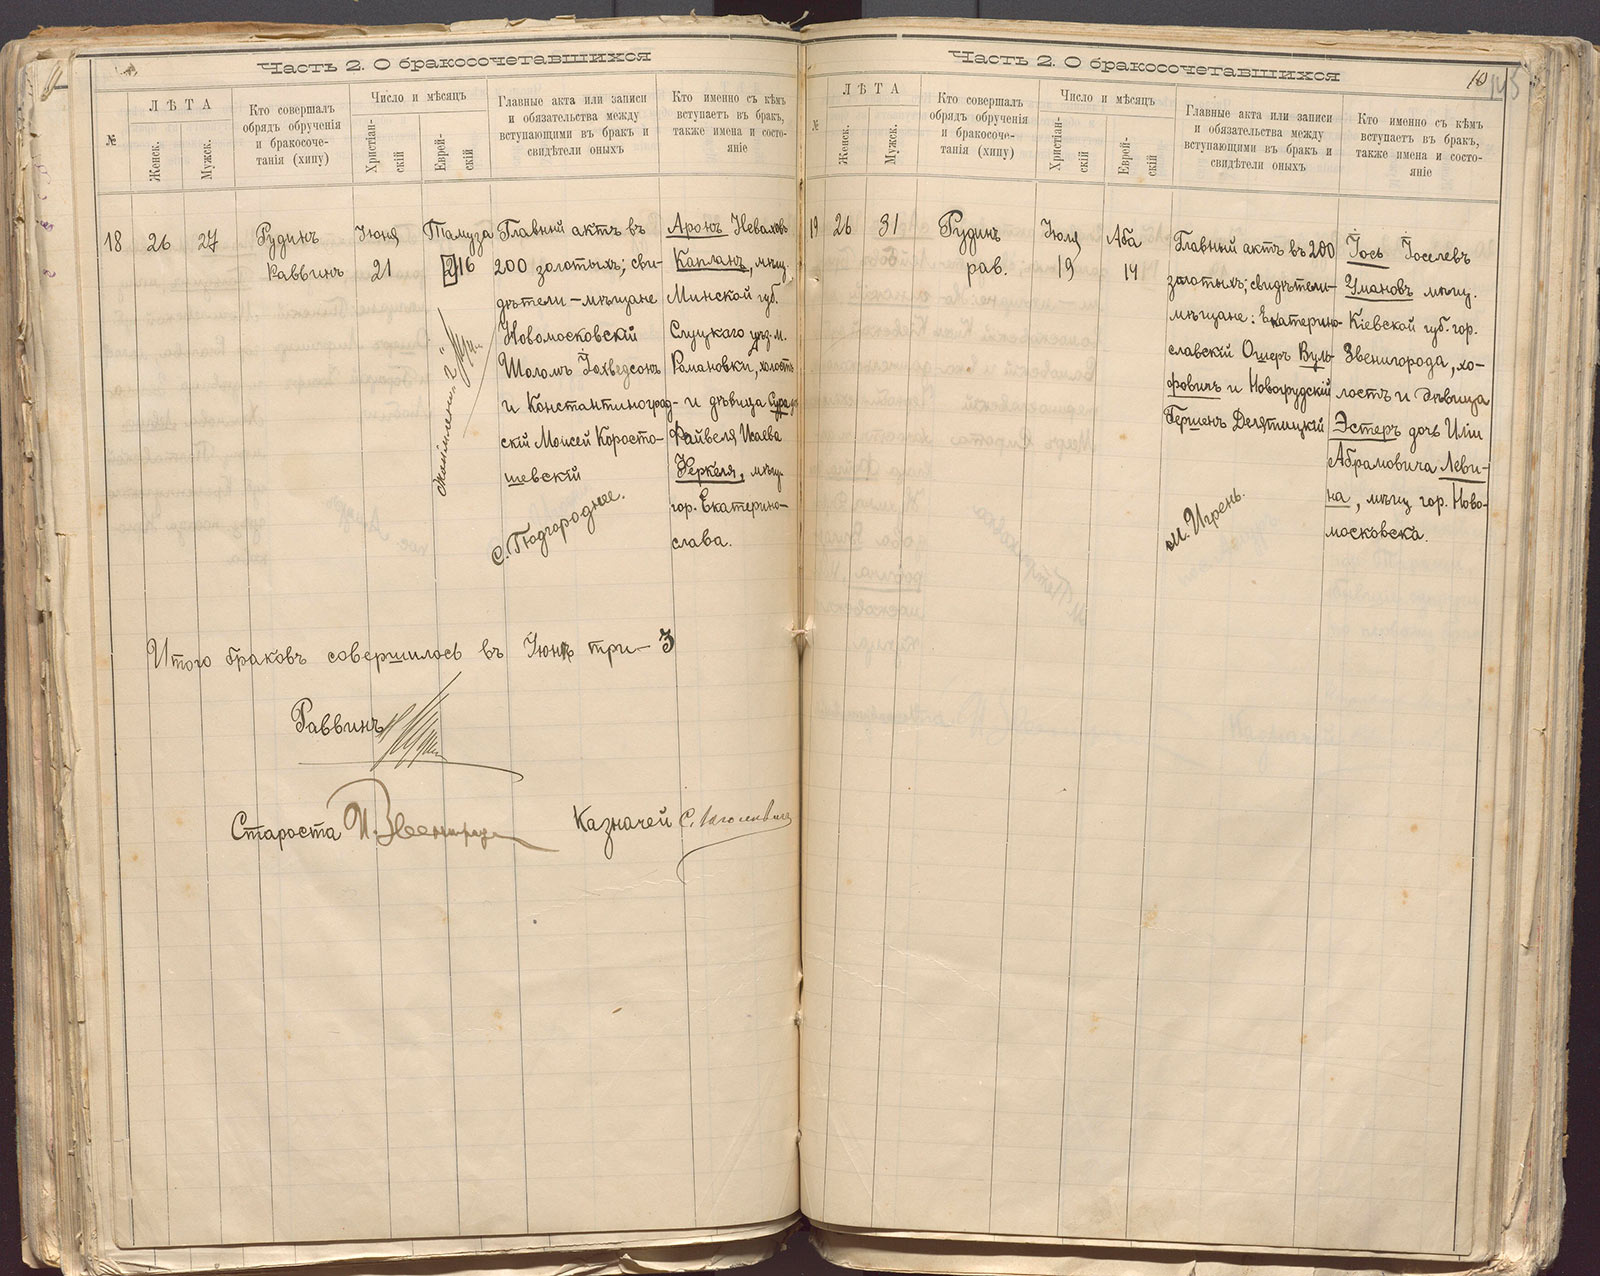 Часть 2. О бракосочетавшихся
№
ЛѢТА
Женск.
Мужск.
Кто совершалъ
обрядъ обрученія
и бракосоче-
танія (хипу)
Число и мѣсяцъ
Христіан-
скій
Еврей-
скій
Главные акта или записи
и обязательства между
вступающими въ бракъ и
свидѣтели оныхъ
Кто именно съ кѣмъ
вступаетъ въ бракъ,
также имена и состо-
яніе
18
26
27
Рудинъ
Раввинъ
Іюня
21
Тамуза
16
Главный актъ въ
200 золотыхъ; сви-
дѣтели – мѣщане
Новомосковскій
Шоломъ
и Константиноград-
скій Моисей Коросто-
шевскій
с. Подгороднее.
Аронъ Неваховъ
Капланъ, мѣщ.
Минской губ.
Слуцкаго уѣз. м.
Романовки, холостъ
и дѣвица
Файвеля Исаева
Херкеля, мѣщ.
гор. Екатерино-
слава.
Итого браковъ совершилось въ Іюнѣ три – 3
Раввинъ
Староста
Казначей
Часть 2. О бракосочетавшихся
10
145
№
ЛѢТА
Женск.
Мужск.
Кто совершалъ
обрядъ обрученія
и бракосоче-
танія (хипу)
Число и мѣсяцъ
Христіан-
скій
Еврей-
скій
Главные акта или записи
и обязательства между
вступающими въ бракъ и
свидѣтели оныхъ
Кто именно съ кѣмъ
вступаетъ въ бракъ,
также имена и состо-
яніе
19
26
31
Рудинъ
рав.
Іюля
19
Аба
14
Главный актъ въ 200
золотыхъ; свидѣтели –
мѣщане: Екатерино-
славскій Ошеръ Вуль-
фовичъ и Новогрудскій
Гершенъ Делятицкій
м. Игрень.
Іось Іоселевъ
Умановъ мѣщ.
Кіевской губ. гор.
Звенигорода, хо-
лостъ и дѣвица
Эстеръ дочь Иліи
Абрамовича Леви-
на, мѣщ. гор. Ново-
московска.